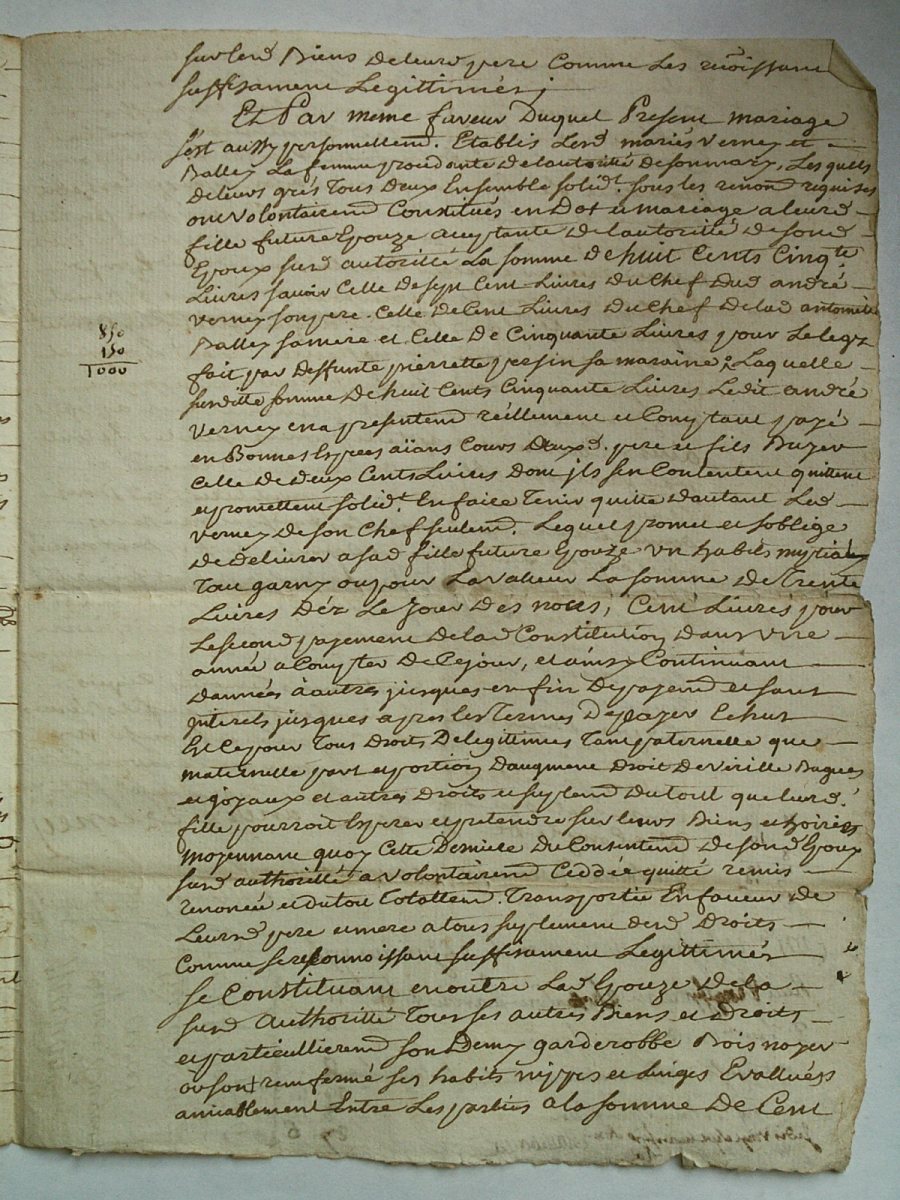 surlesd Biens deleurd pere Comme les recoissant
suffisament Legittimés;
Et Par meme faveur Duquel Present mariage
s'est aussy personnellemd. Etablis Lesd mariés verney et
Balley La femme procedante de l'autorité de son mary, Lesquels
de leurs grés tous deux Ensemble solidt. sous les renond requises
ont volontairemd Constitués en Dot et mariage a leurd
fille future Epouze aceptante de l'autorité de sond
Epoux surd autorité La somme de huit Cents Cinqte
Livres savoir Celle de sept Cent Livres du Chef dud andré
verney son pere. Celle de Cent Livres du Chef de lad antoinette
Balley sa mere et Celle de Cinquante Livres pour Le legz
fait par deffunte pierrette persin sa maraine; Laquelle
surditte somme de huit Cents Cinquante Livres Ledit andré
verney en a presentemd réellement et Comptant payé
en Bonnes Especes aïans Cours auxd. pere et fils Buyer
Celle de deux Cents Livres dont jls se Contentent quittent
et promettent solidt. En faire tenir quitte dautant Led
verney de son Chef seulemd. Lequel promet et soblige
de delivrer a sad fille future Epouze un habit nuptial
tout garny ou pour La valleur La somme de Trente
Livres déz Le Jour des noces; Cent Livres pour
Le second payement de lad Constitution dans une
année a Compter de Cejour, et ainsy Continuant
dannées à autres jusquas en fin de payemd et sans
jnterets jusques apres les Termes de payer Echus
Et Ce pour tous droits De legitimes tant paternelle que
maternelle part et portion daugment droit de virille Bagues
et joyaux et autres droits et suplemd du tout que leurd.
fille pourroit Esperer et pretendre sur leurs Biens et hoiries
moyennant quoy Cette derniere du Consentemd de sond Epoux
surd authorité a volontairemd Ceddée quitté remis
renoncée et du tout totallemd. transportée En faveur de
Leursd pere et mere a tous suplement desd droits
Comme se reconnoissant suffisament Legittimés
se Constituant en outre Lad Epouze de la
surd Authorité tous ses autres Biens et droits
et particullieremd son demy garderobbe Bois noyer
où sont renfermé ses habits nippes et Linges Evallués
amiablement Entre Les parties a la somme de Cent
850
150
1000